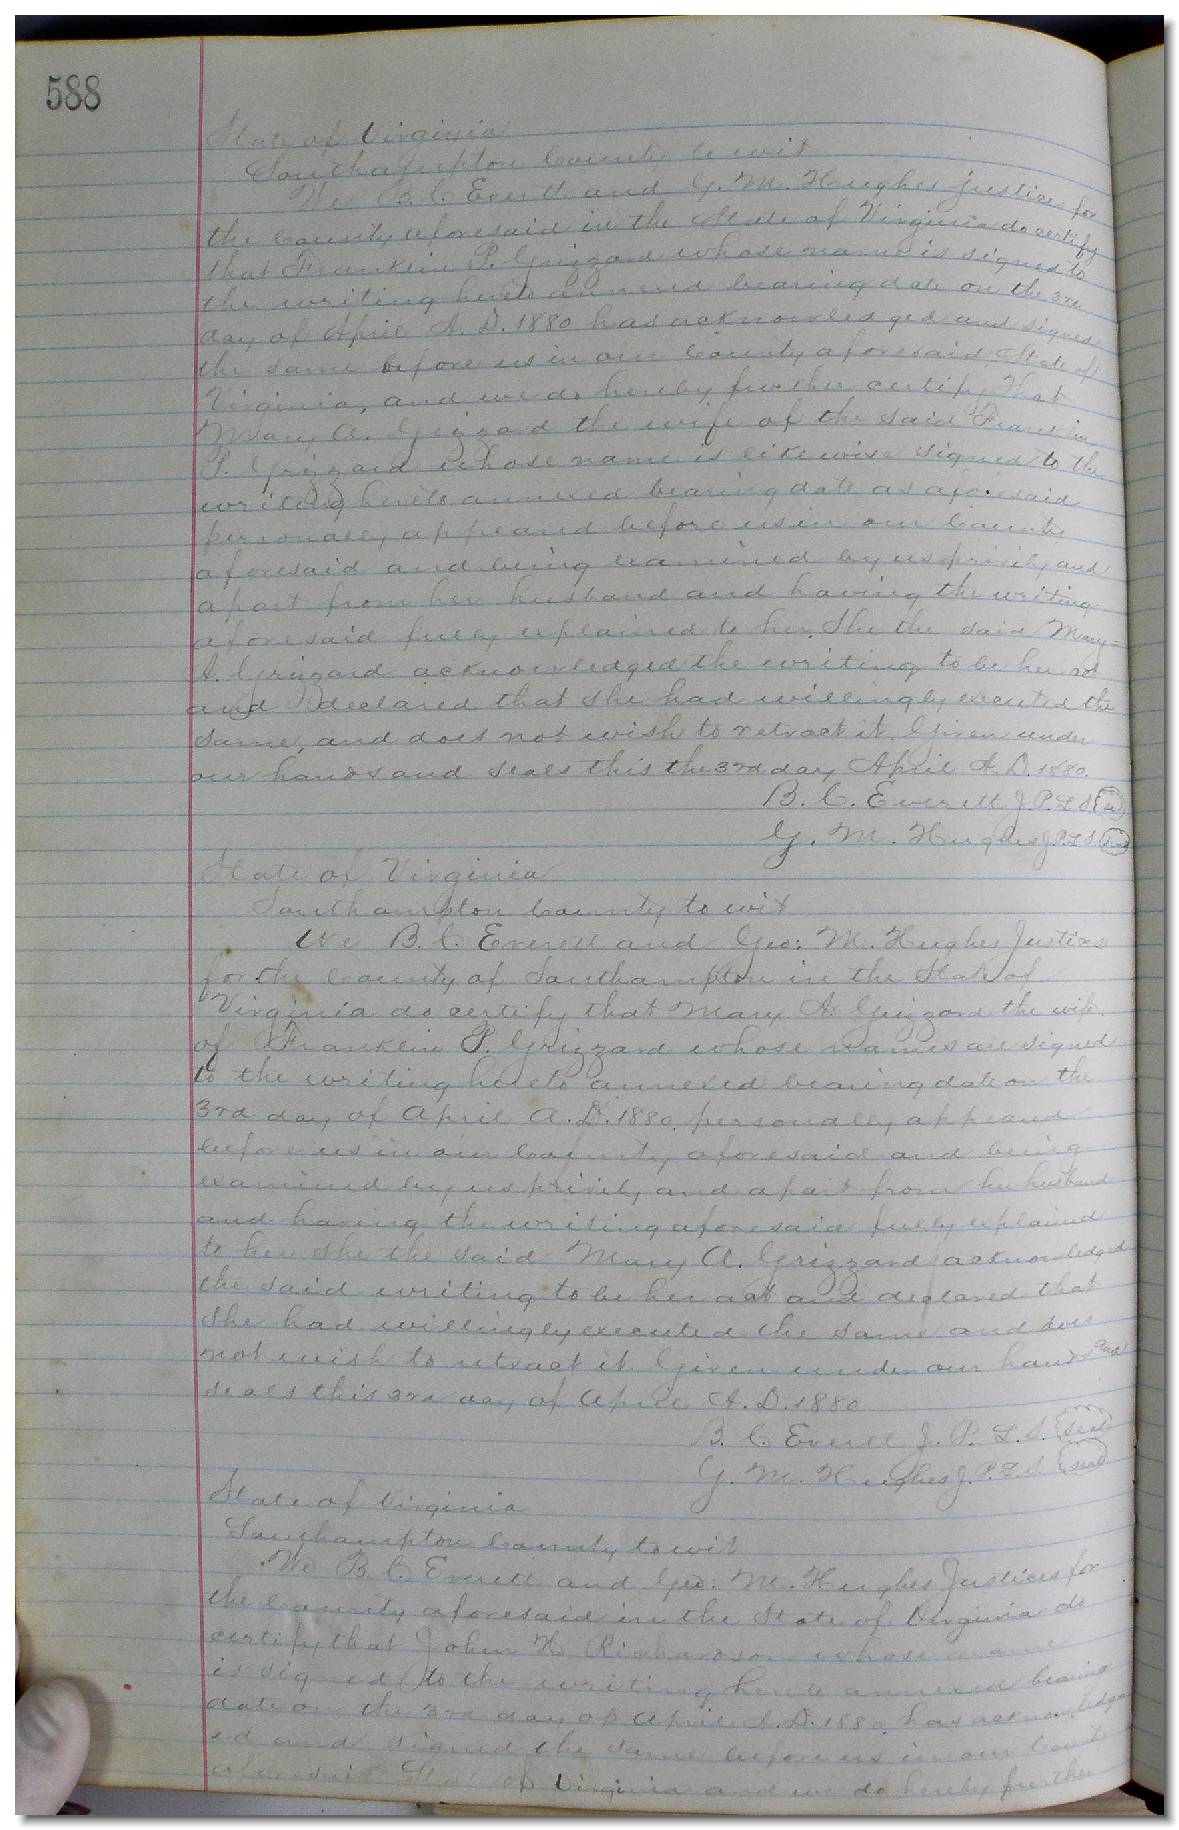 588
State of Virginia
Southampton County to wit
We B. C. Everett and G. M. Hughes justices for
the County aforesaid in the State of Virginia do certify
that Franklin P. Grizzard whose name is signed to
the writing hereto annexed bearing date on the 3rd
day of April A. D. 1880 has acknowledged and signed
the same before us in our County aforesaid, State of
Virginia, and we do hereby further certify that
Mary A. Grizzard the wife of the said Franklin
P. Grizzard whose name is likewise signed to the
writing hereto annexed bearing date as aforesaid
personally appeared before us in our County
aforesaid and being examined by us privily and
apart from her husband and having the writing
aforesaid fully explained to her. She the said Mary
A. Grizzard acknowledged the writing to be her act
and declared that she had willingly executed the
same, and does not wish to retract it. Given under
our hands and seals this the 3rd day April A. D. 1880.
B. C. Everett J. P. L. S. (seal)
G. M. Hughes J. P. L. S. (seal)
State of Virginia
Southampton County to wit
We B. C. Everett and Geo: M. Hughes Justices
for the County of Southampton in the State of
Virginia do certify that Mary A. Grizzard the wife
of Franklin P. Grizzard whose names are signed
to the writing hereto annexed bearing date on the
3rd day of April A. D. 1880. personally appeared
before us in our County aforesaid and being
examined by us privily and apart from her husband
and having the writing aforesaid fully explained
to her she the said Mary A. Grizzard acknowledged
the said writing to be her act and declared that
she had willingly executed the same and does
not wish to retract it Given under our hands and
seals this 3rd day of April A. D. 1880
B. C. Everett J. P. L. S. (seal)
G. M. Hughes J. P. L. S. (seal)
State of Virginia
Southampton County to wit
We B. C. Everett and Geo. M. Hughes Justices for
the County aforesaid in the State of Virginia do
certify that John H. Richardson whose name
is signed to the writing hereto annexed bearing
date on the 3rd day of April A. D. 1880. has acknowledg
ed and signed the same before us in our County
aforesaid State of Virginia and we do hereby further